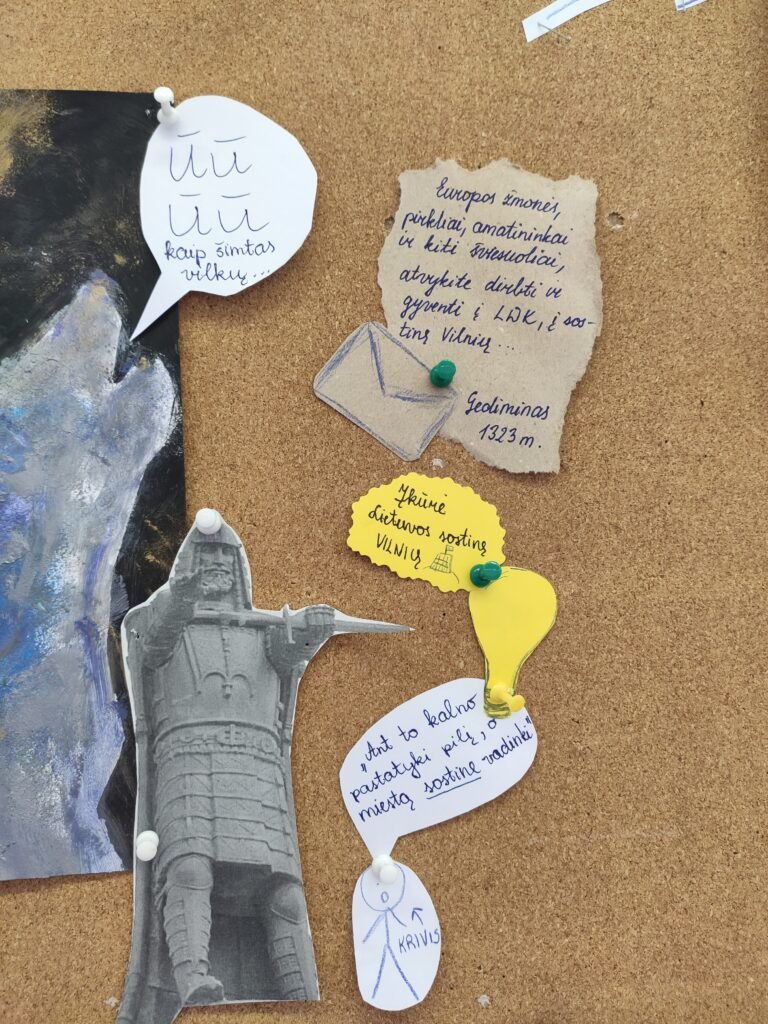 Ū Ū
Ū Ū
kaip šimtas
vilkų...
Europos žmonės,
pirkliai, amatininkai
ir kiti šviesuoliai,
atvykite dirbti ir
gyventi į LDK, į sos-
tinę Vilnių...
Gediminas
1323 m.
Įkūrė
Lietuvos sostinę
VILNIŲ
"Ant to kalno
pastatyki pilį, o
miestą sostine vadinki"
KRIVIS